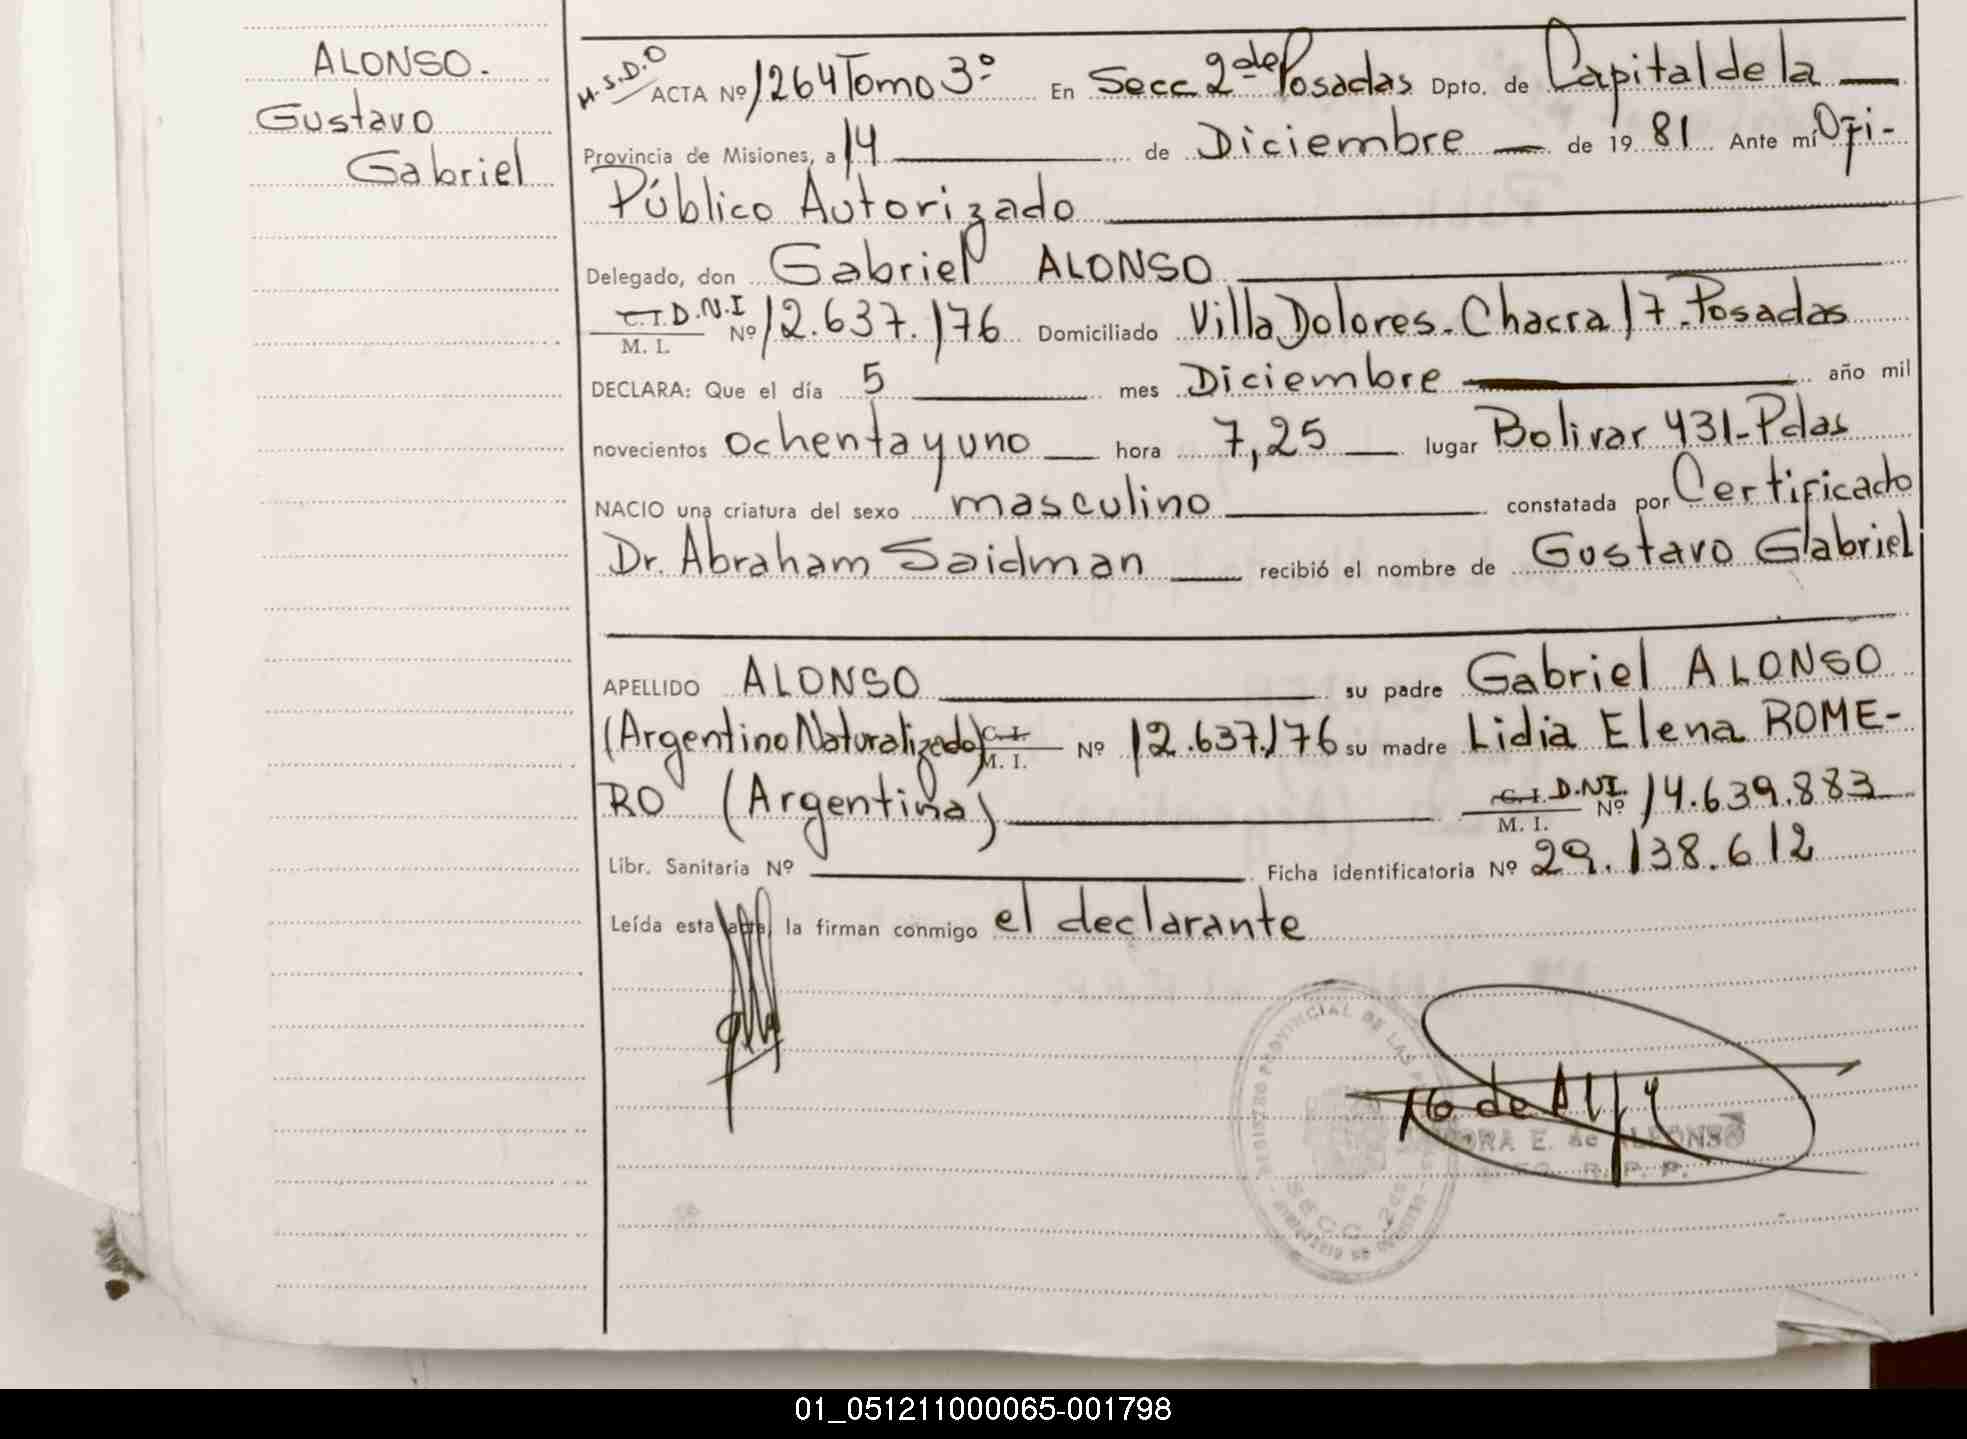 ALONSO.
Gustavo
Gabriel
M.S.D.O
ACTA Nº 1264 Tomo 3º En Secc 2da de Posadas Dpto. de Capital de la
Provincia de Misiones, a 14 de Diciembre de 1981 Ante mí Ofi-
Público Autorizado
Delegado, don Gabriel ALONSO
C.I. D.N.I
M. I. Nº 12.637.176 Domiciliado Villa Dolores - Chacra 17 - Posadas
DECLARA: Que el día 5 mes Diciembre año mil
novecientos ochenta y uno hora 7,25 lugar Bolivar 431 - Pdas
NACIO una criatura del sexo masculino constatada por Certificado
Dr. Abraham Saidman recibió el nombre de Gustavo Gabriel
APELLIDO ALONSO su padre Gabriel ALONSO
(Argentino Naturalizado) C.I. M. I. Nº 12.637.176 su madre Lidia Elena ROME-
RO (Argentina) C.I. D.N.I. M. I. Nº 14.639.883
Libr. Sanitaria Nº Ficha identificatoria Nº 29.138.612
Leída esta acta, la firman conmigo el declarante
REGISTRO PROVINCIAL DE LAS
SECC. 2da
E. de ALFONSO
R. P. P.
01_051211000065-001798